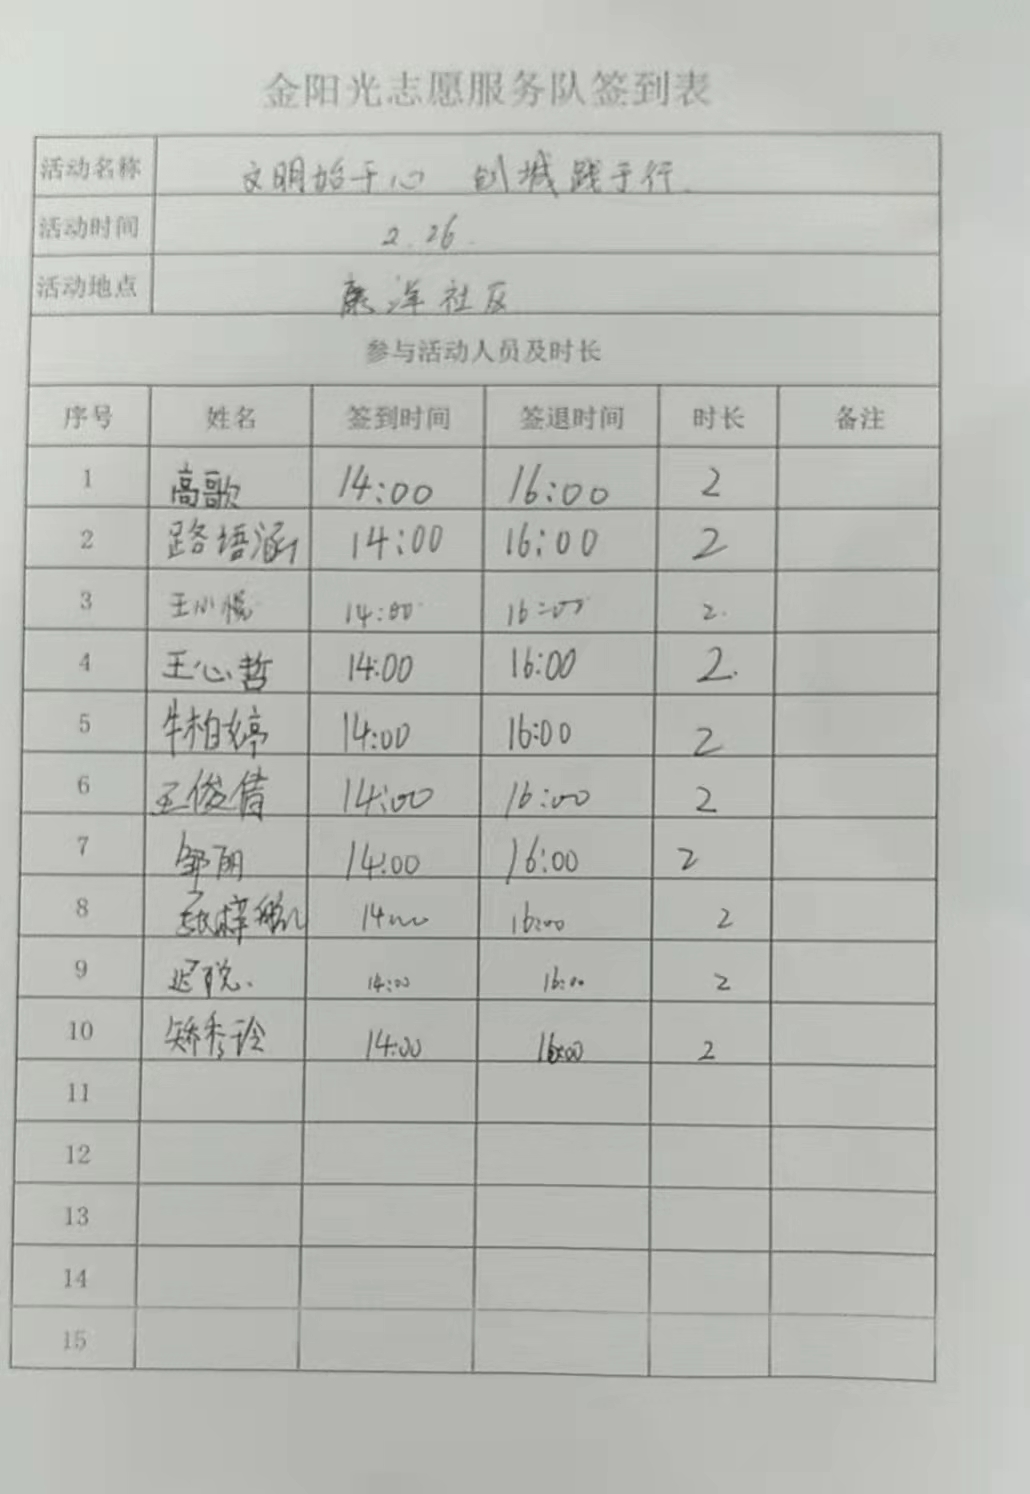 金阳光志愿服务队签到表
活动名称 文明始于心 创城践于行
活动时间 2.26.
活动地点 康洋社区
参与活动人员及时长
序号 姓名 签到时间 签退时间 时长 备注
1 高歌 14:00 16:00 2
2 路培涵 14:00 16:00 2
3 王小悦 14:00 16:00 2.
4 王心哲 14:00 16:00 2.
5 牛柏婷 14:00 16:00 2
6 王俊倩 14:00 16:00 2
7 邹丽 14:00 16:00 2
8 14:00 16:00 2
9 迟悦 14:00 16:00 2
10 矫秀玲 14:00 16:00 2
11
12
13
14
15